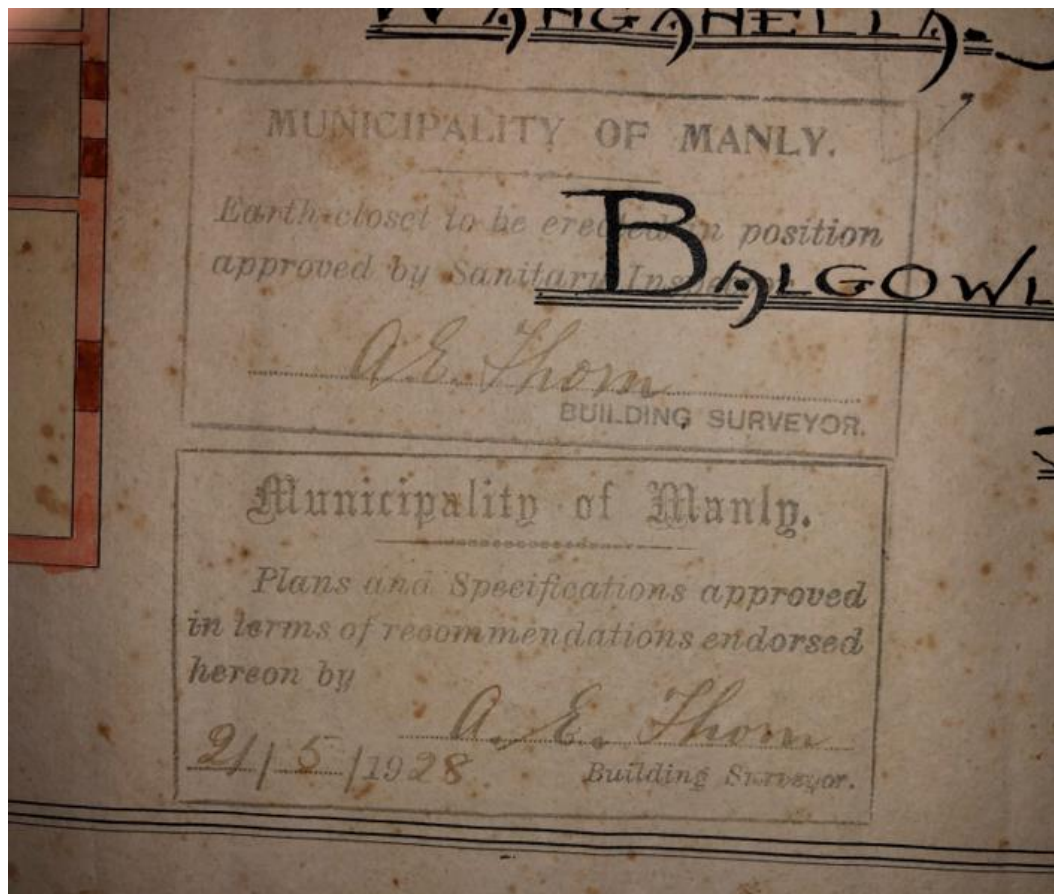 WANGANELLA
MUNICIPALITY OF MANLY.
Earth-closet to be erected in position
approved by Sanitary Inspector
BALGOWL
A E. Thorn
BUILDING SURVEYOR.
Municipality of Manly.
Plans and Specifications approved
in terms of recommendations endorsed
hereon by
A. E. Thorn
21/5/1928
Building Surveyor.